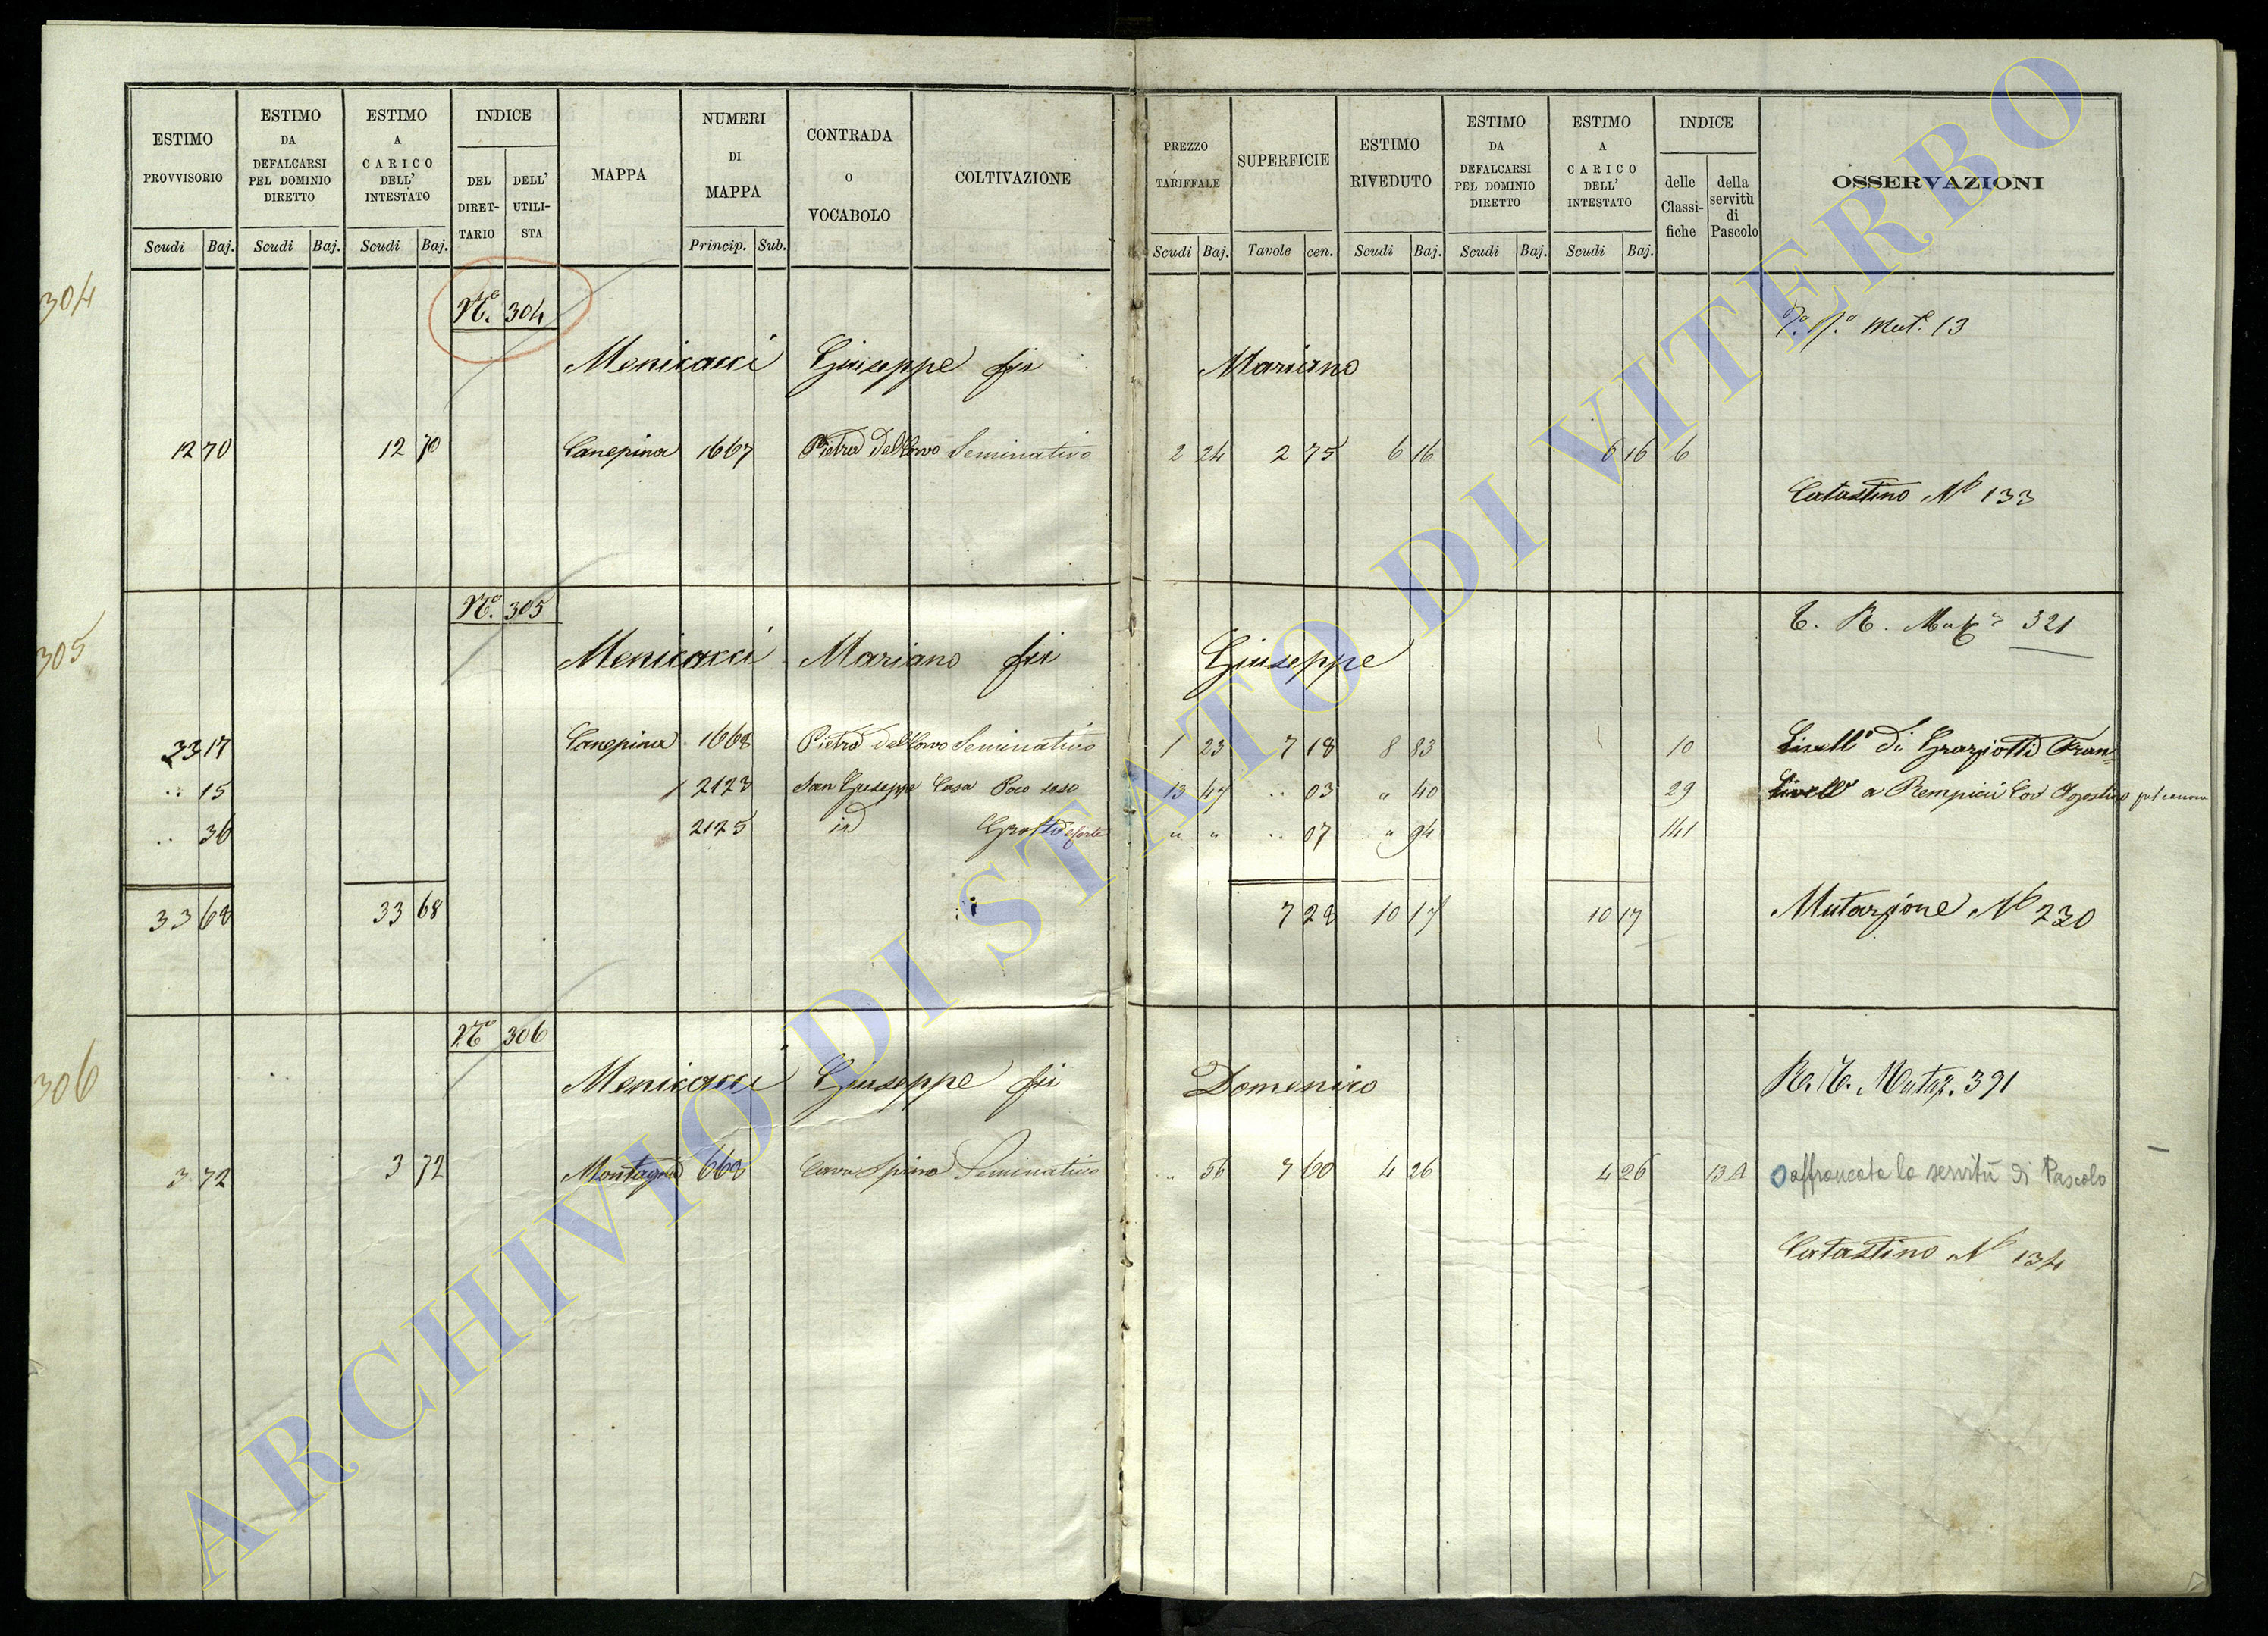 ESTIMO PROVVISORIO
ESTIMO DA DEFALCARSI PEL DOMINIO DIRETTO
ESTIMO A CARICO DELL' INTESTATO
INDICE
DEL DIRET-TARIO
DELL' UTILI-STA
MAPPA
NUMERI DI MAPPA
CONTRADA O VOCABOLO
COLTIVAZIONE
PREZZO TARIFFALE
SUPERFICIE
ESTIMO RIVEDUTO
ESTIMO DA DEFALCARSI PEL DOMINIO DIRETTO
ESTIMO A CARICO DELL' INTESTATO
INDICE
delle Classi-fiche
della servitù di Pascolo
OSSERVAZIONI
Scudi Baj. Scudi Baj. Scudi Baj. Princip. Sub. Scudi Baj. Tavole cen. Scudi Baj. Scudi Baj. Scudi Baj.
304
N.º 304
Mut.e 13
Menicacci Giuseppe di Mariano
12 70 12 70 Canepina 1667 Pietra del Corvo Seminativo 2 24 2 75 6 16 6 16 6
Catastino Nº 133
305
N.º 305
T. R. Mut 321
Menicacci Mariano di Giuseppe
33 17 Canepina 1668 Pietra del Corvo Seminativo 1 23 7 18 8 83 10 Livellº di Graziotti Fran=
.. 15 2123 San Giuseppe Casa Poco saso 13 47 .. 03 " 40 29 Livellº a Rempicci Agostino
.. 36 2125 id Grotta " " .. 07 " 94 141
33 68 33 68 7 28 10 17 10 17 Mutazione Nº 230
306
Nº 306
Menicacci Giuseppe di Domenico
R. T. Mutaz. 391
3 72 3 72 Montagna 668 Cava Spina Seminativo .. 56 7 60 4 26 4 26 13 A affrancata la servitù di Pascolo
Catastino Nº 134
ARCHIVIO DI STATO DI VITERBO